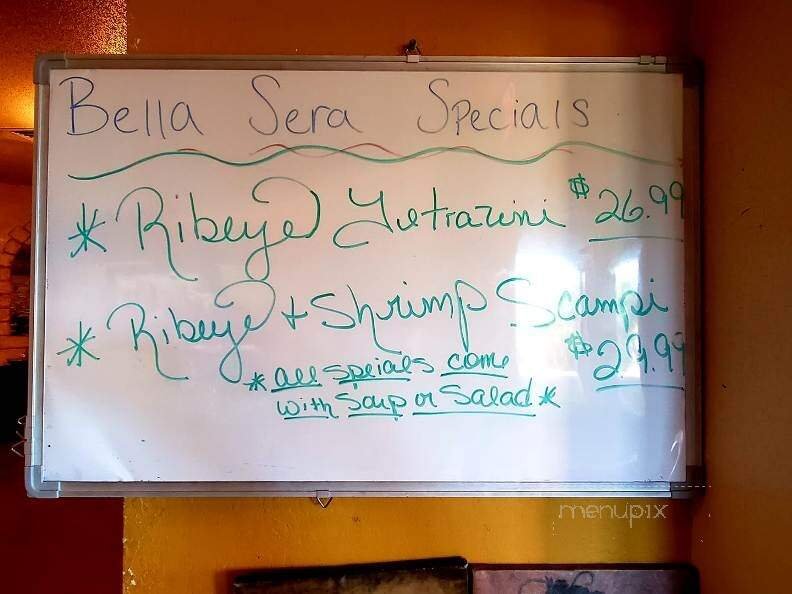 Bella Sera Specials
* Ribeye Tetrazini $26.99
* Ribeye + Shrimp Scampi $29.99
* all speials come
with Soup or Salad *
menupix